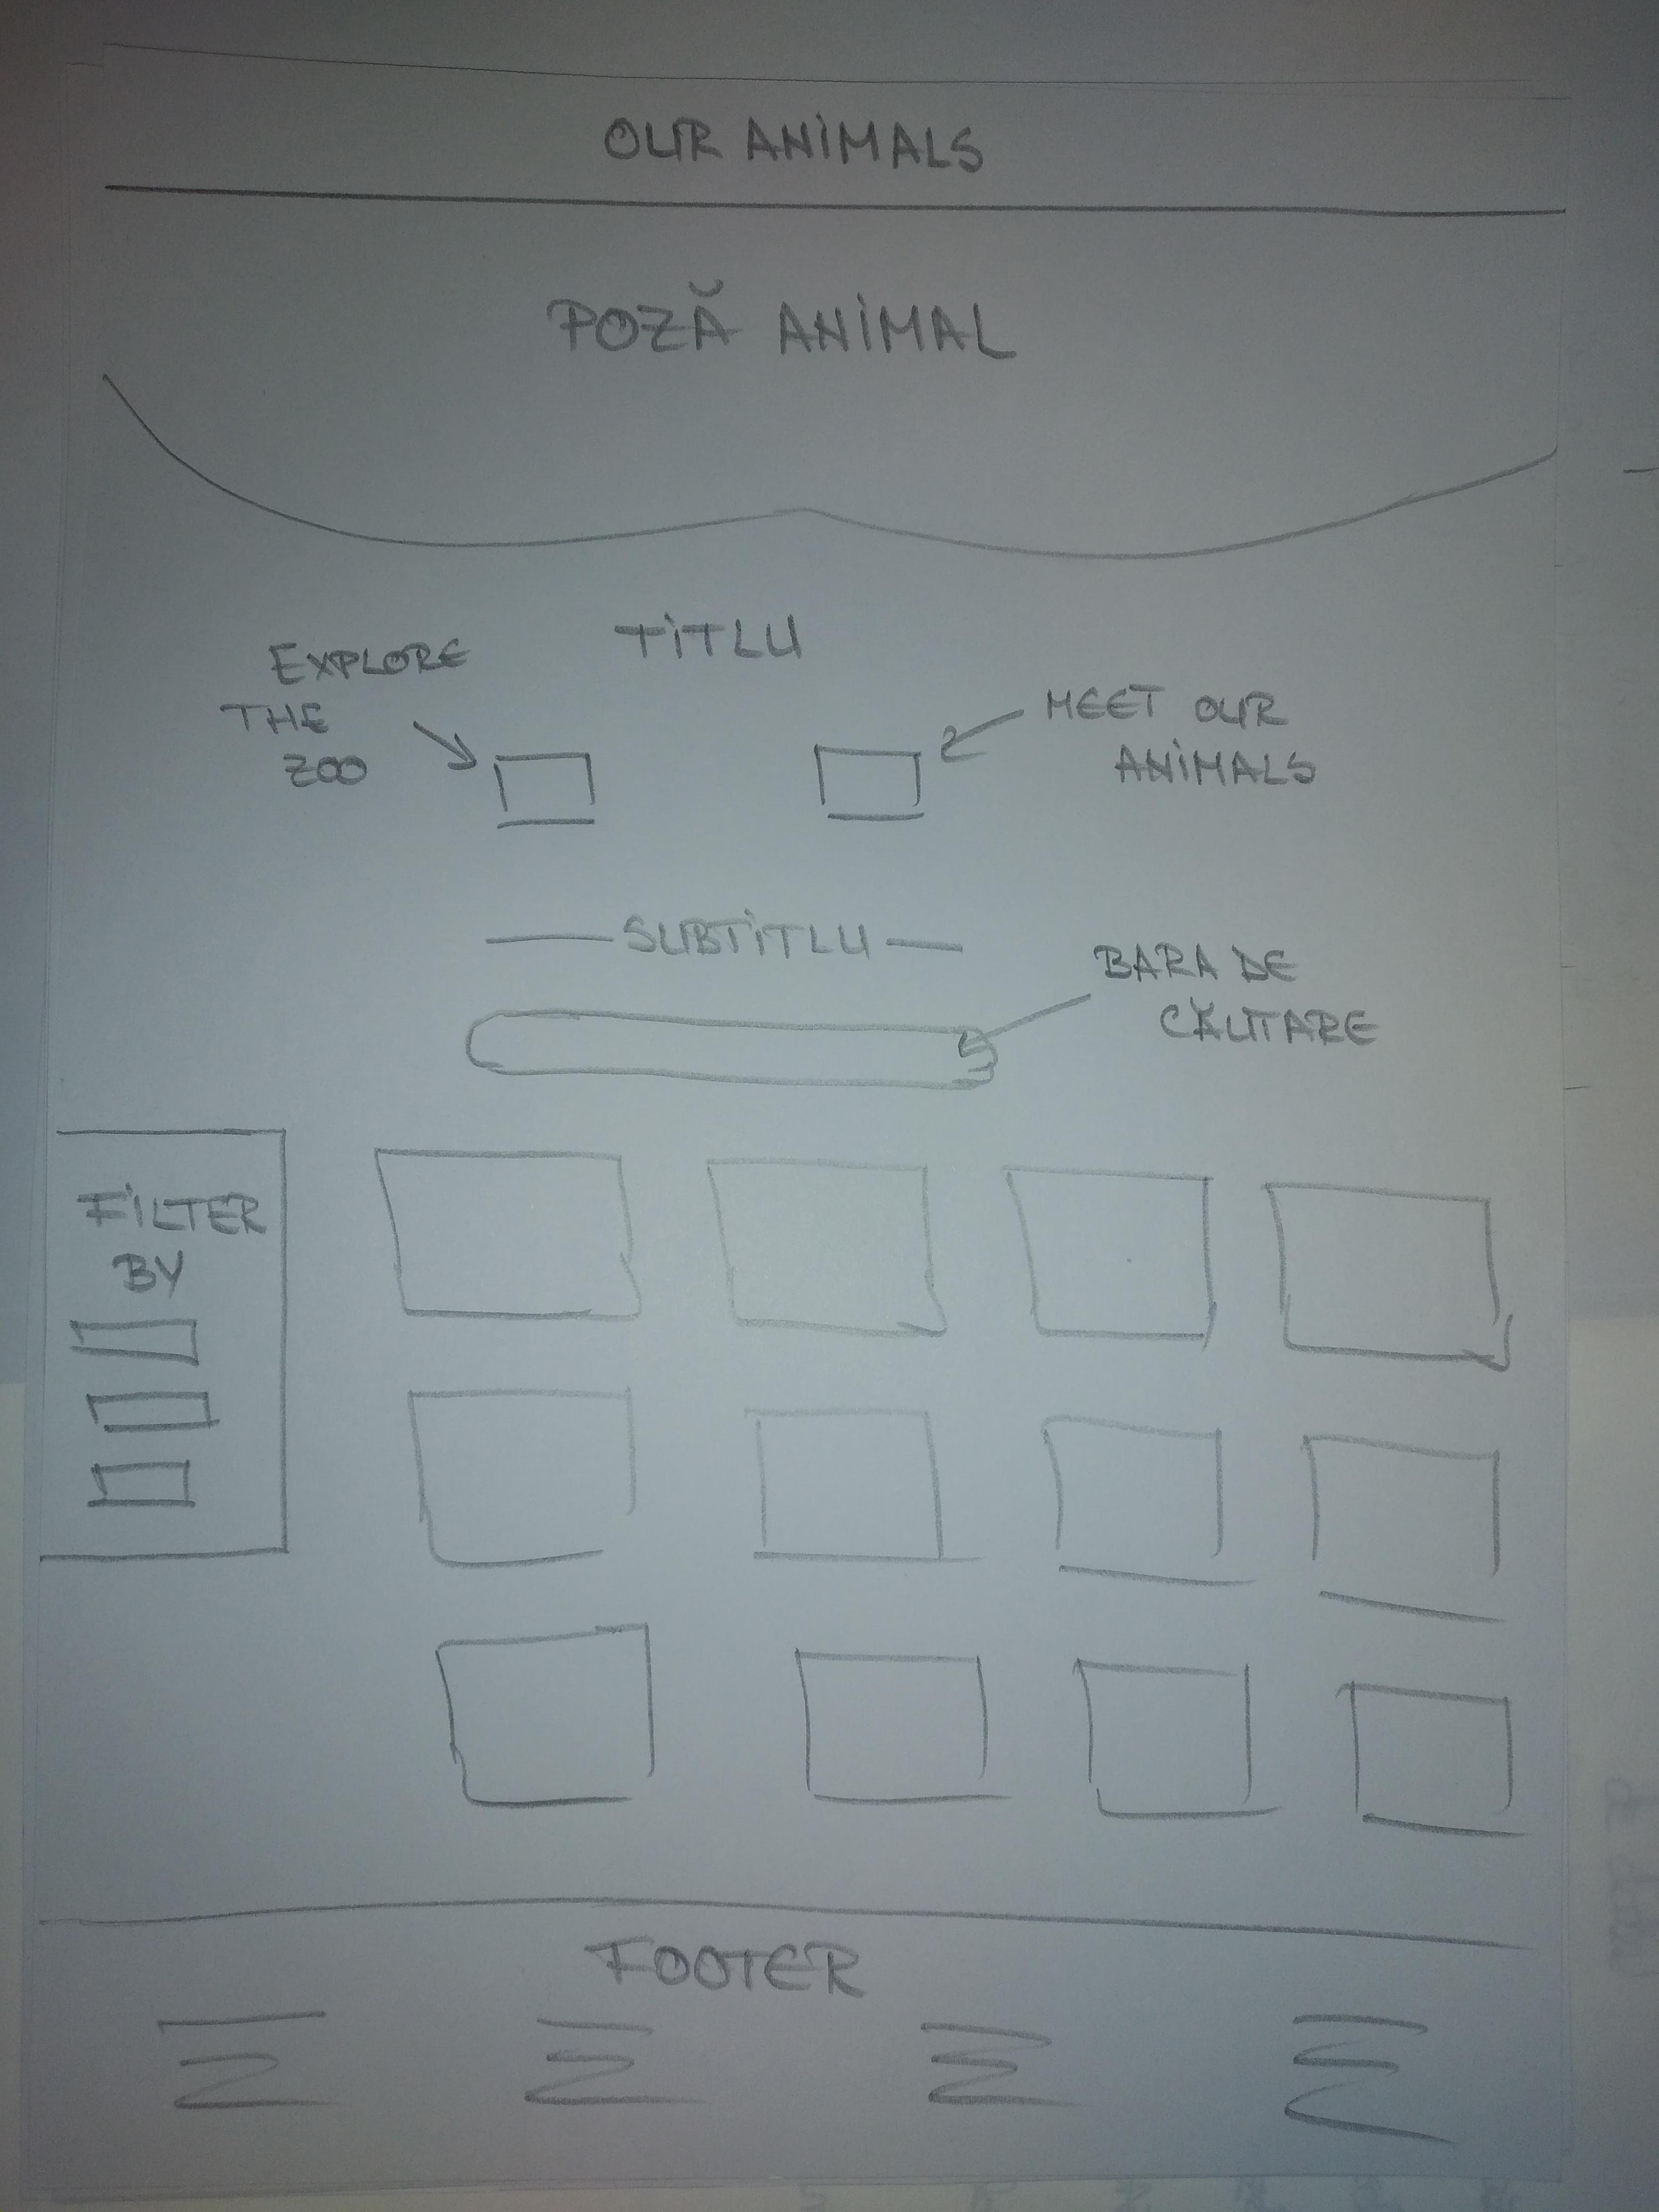 OUR ANIMALS
POZĂ ANIMAL
TITLU
EXPLORE
THE
ZOO
MEET OUR
ANIMALS
SUBTITLU
BARA DE
CĂUTARE
FILTER
BY
FOOTER